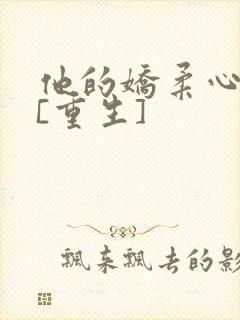 他的嬌柔心
[重生]
飄來飄去的影